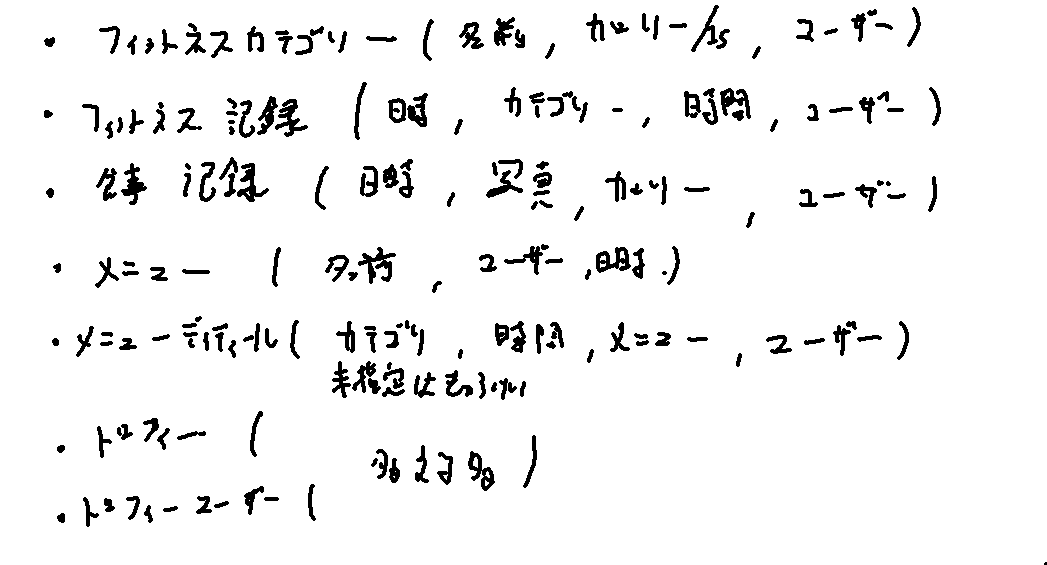 ・フィットネスカテゴリー(名前, カロリー/1s, ユーザー)
・フィットネス 記録 (日時, カテゴリー, 時間, ユーザー)
・食事 記録 (日時, 写真, カロリー, ユーザー)
・メニュー (名前, ユーザー, 日時.)
・メニューディティール(カテゴリ, 時間, メニュー, ユーザー)
未指定は
・トロフィー (
多対多)
・トロフィーユーザー(